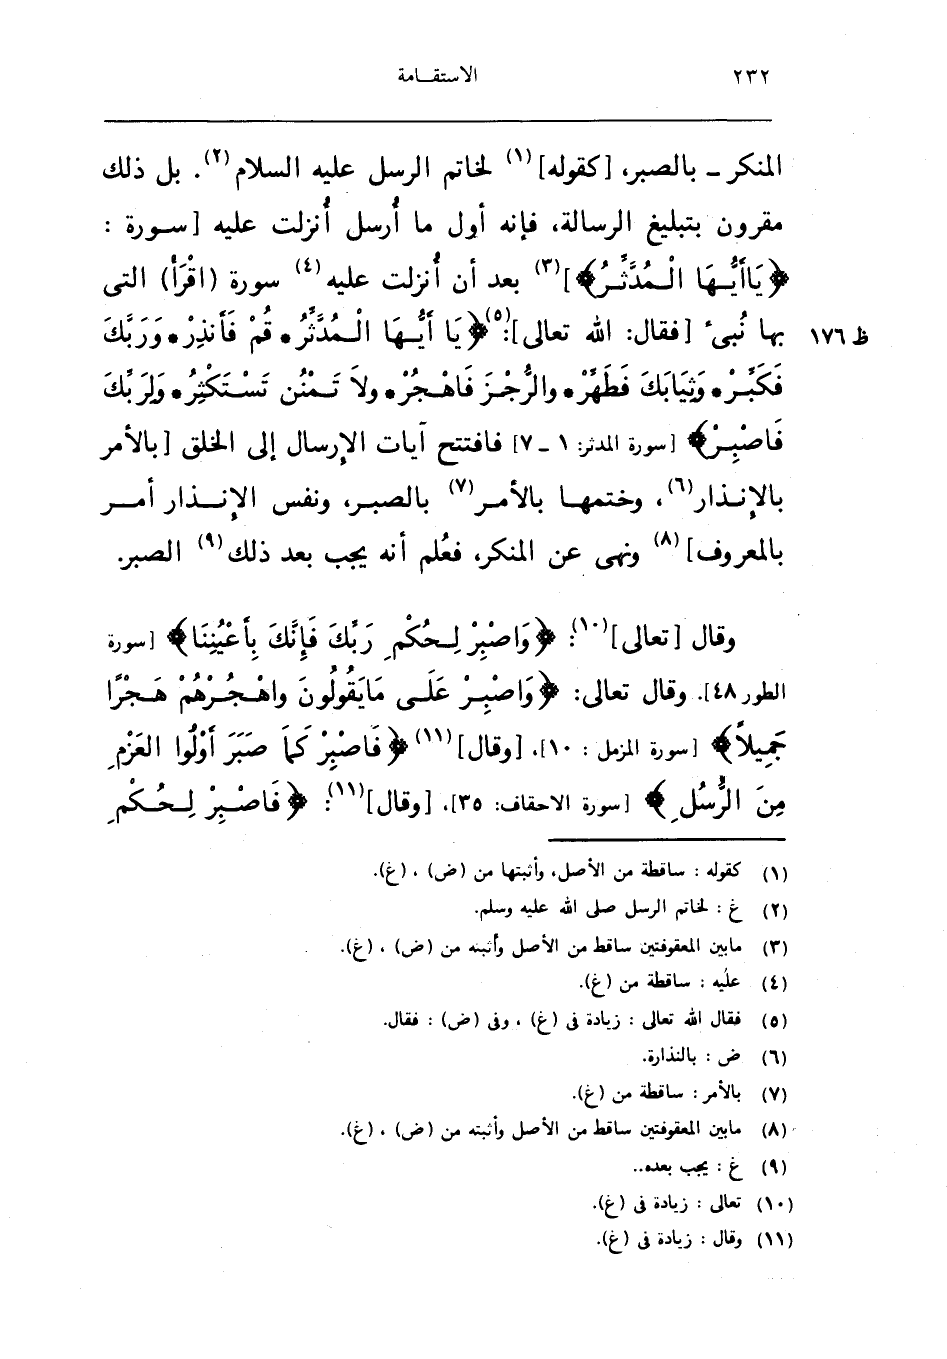 ٢٣٢ الاستقـامة
المنكر ـ بالصبر، [كقوله] (١) لخاتم الرسل عليه السلام (٢). بل ذلك
مقرون بتبليغ الرسالة، فإنه أول ما أُرسل أُنزلت عليه [سـورة :
﴿يَاأَيُّـهَا الْـمُدَّثِّـرُ﴾] (٣) بعد أن أُنزلت عليه (٤) سورة (اقْرَأْ) التى
بها نُبىء [فقال: الله تعالى] (٥): ﴿يَا أَيُّـهَا الْـمُدَّثِّرُ • قُمْ فَأَنذِرْ • وَرَبَّكَ ظ ١٧٦
فَكَبِّـرْ • وَثِيَابَكَ فَطَهِّرْ • والرُّجْـزَ فَاهْـجُرْ • ولاَ تَـمْنُن تَسْـتَكْثِرُ • وَلِرَبِّكَ
فَاصْبِـرْ﴾ [سورة المدثر: ١ ـ ٧] فافتتح آيات الإرسال إلى الخلق [بالأمر
بالإنـذار (٦)، وختمهـا بالأمـر (٧) بالصبـر، ونفس الإنـــذار أمـــر
بالمعروف] (٨) ونهى عن المنكر، فعُلم أنه يجب بعد ذلك (٩) الصبر.
وقال [تعالى] (١٠): ﴿وَاصْبِرْ لِـحُكْمِ رَبِّكَ فَإِنَّكَ بِأَعْيُنِنَا﴾ [سورة
الطور ٤٨]. وقال تعالى: ﴿وَاصْبِـرْ عَلَـى مَايَقُولُونَ واهْـجُـرْهُمْ هَـجْرًا
جَمِيلاً﴾ [سورة المزمل : ١٠]، [وقال] (١١) ﴿فَاصْبِرْ كَمَا صَبَرَ أُوْلُوا العَزْمِ
مِنَ الرُّسُلِ﴾ [سورة الاحقاف: ٣٥]، [وقال] (١١): ﴿فَاصْـبِرْ لِـحُـكْمِ
(١) كقوله : ساقطة من الأصل، وأثبتها من (ض) ، (غ).
(٢) غ : لخاتم الرسل صلى الله عليه وسلم.
(٣) مابين المعقوفتين ساقط من الأصل وأثبته من (ض) ، (غ).
(٤) عليه : ساقطة من (غ).
(٥) فقال الله تعالى : زيادة فى (غ) ، وفى (ض) : فقال.
(٦) ض : بالنذارة.
(٧) بالأمر : ساقطة من (غ).
(٨) مابين المعقوفتين ساقط من الأصل وأثبته من (ض) ، (غ).
(٩) غ : يجب بعده..
(١٠) تعالى : زيادة فى (غ).
(١١) وقال : زيادة فى (غ).